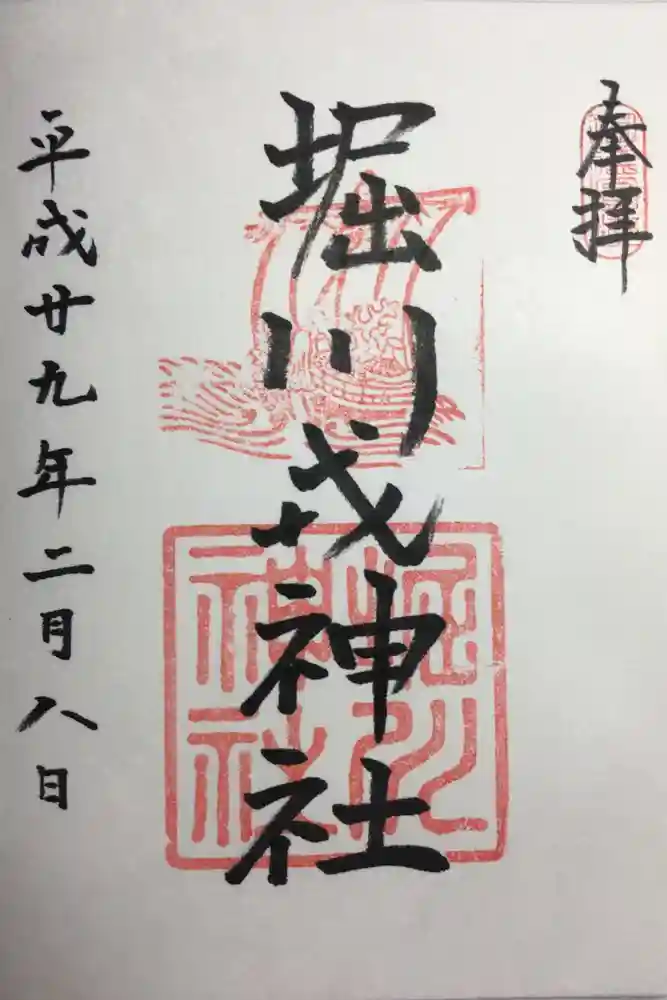 奉拝
堀川戎神社
堀川
神社
平成廿九年二月八日